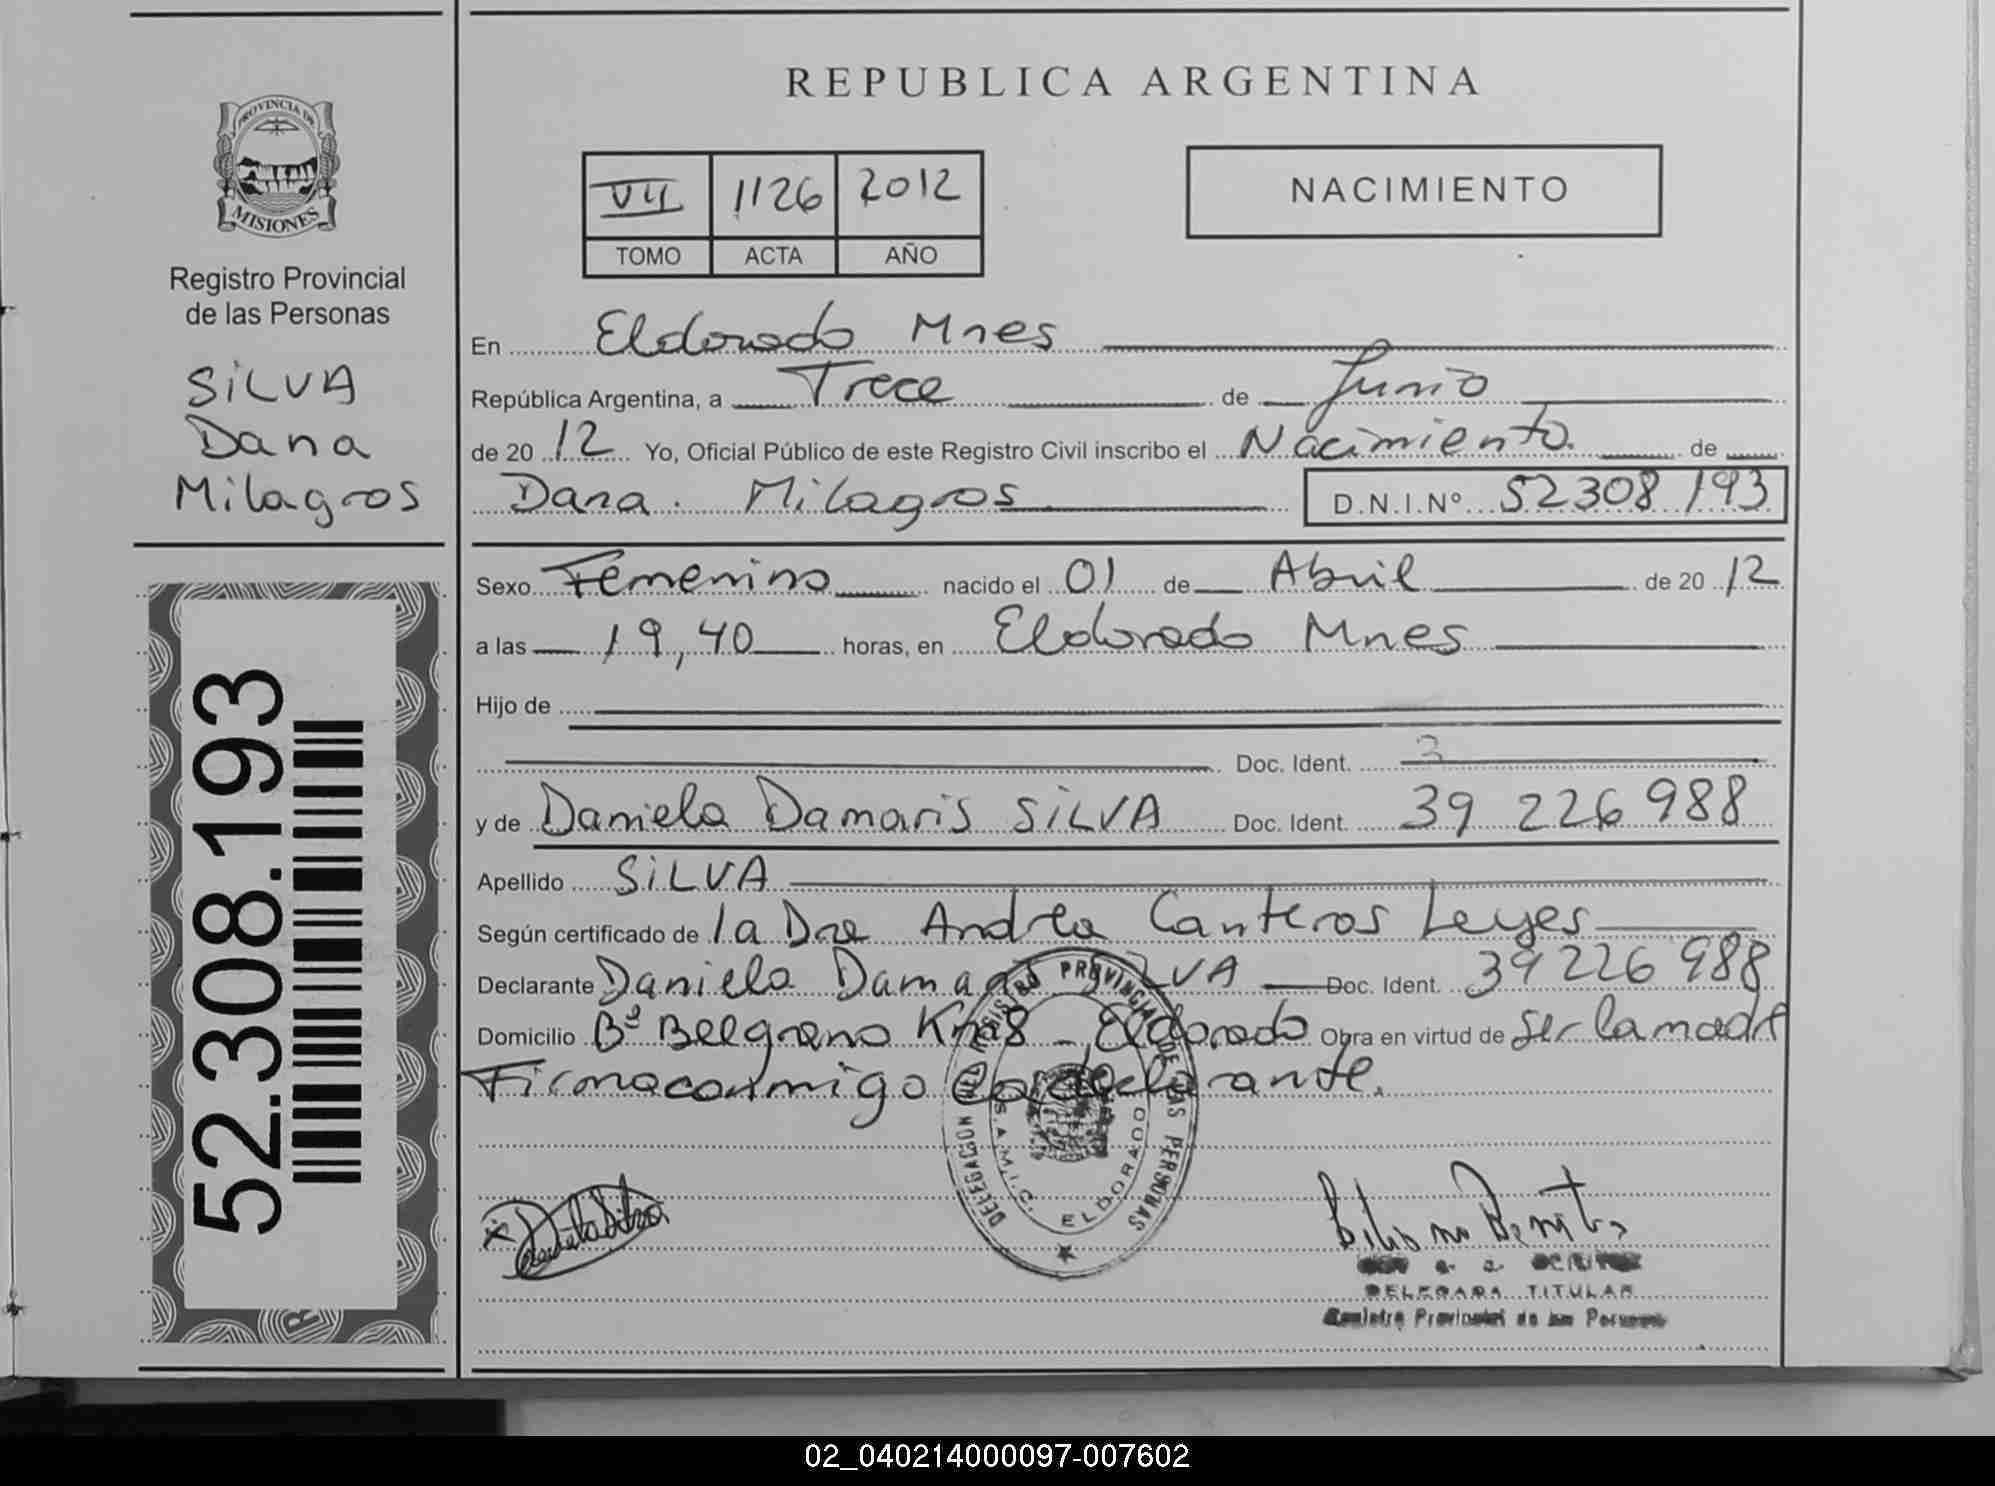 REPUBLICA ARGENTINA
PROVINCIA DE
MISIONES
Registro Provincial
de las Personas
SILVA
Dana
Milagros
52.308.193
VII 1126 2012
TOMO ACTA AÑO
NACIMIENTO
En Eldorado Mnes
República Argentina, a Trece de Junio
de 20 12 Yo, Oficial Público de este Registro Civil inscribo el Nacimiento de
Dana Milagros D.N.I.Nº 52308193
Sexo Femenino nacido el 01 de Abril de 20 12
a las 19,40 horas, en Eldorado Mnes
Hijo de
Doc. Ident.
y de Daniela Damaris SILVA Doc. Ident. 39 226 988
Apellido SILVA
Según certificado de la Dra Andrea Canteros Leyes
Declarante Daniela Damaris SILVA Doc. Ident. 39226988
Domicilio Bº Belgrano Km 8 - Eldorado Obra en virtud de ser la madre
Firma conmigo la declarante.
DELEGACION DEL REGISTRO PROVINCIAL DE LAS PERSONAS
S.A.M.I.C. ELDORADO
DELEGADA TITULAR
Registro Provincial de las Personas
02_040214000097-007602